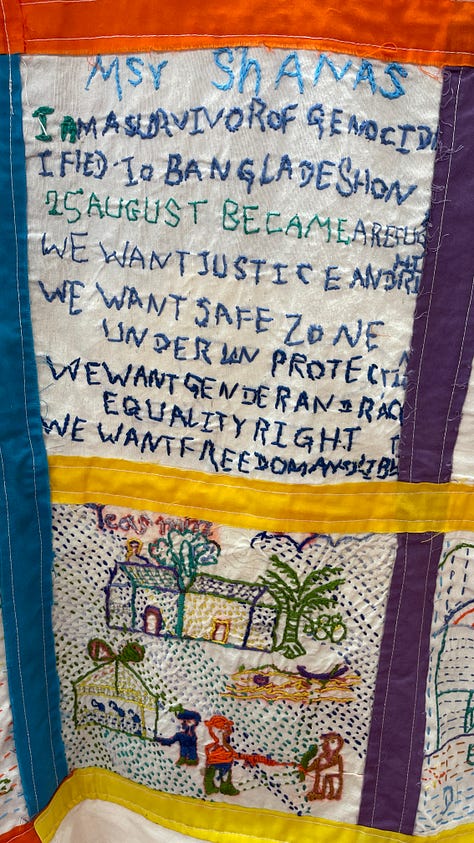 MSY SHANAS
I AM A SURVIVOR OF GENOCIDE
I FlED TO BANGLADESH ON
25 AUGUST BECAME A REFUG
WE WANT JUSTICE AND RI
WE WANT SAFE ZONE
UNDER UN PROTECTI
WE WANT GENDER AND RAC
EQUALITY RIGHT
WE WANT FREEDOM AND